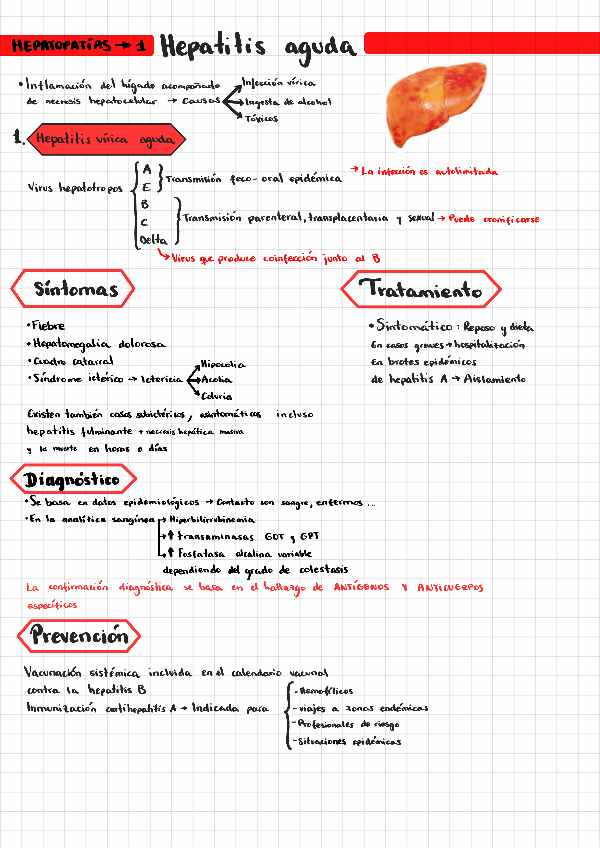 HEPATOPATÍAS → 1 Hepatitis aguda
• Inflamación del hígado acompañado
de necrosis hepatocelular → Causas
Infección vírica
Ingesta de alcohol
Tóxicos
1. Hepatitis vírica aguda
Virus hepatotropos
A
E
Transmisión feco-oral epidémica → La infección es autolimitada
B
C
Delta
Transmisión parenteral, transplacentaria y sexual → Puede cronificarse
→ Virus que produce coinfección junto al B
Síntomas
• Fiebre
• Hepatomegalia dolorosa
• Cuadro catarral
• Síndrome ictérico → Ictericia
Hipocolia
Acolia
Coluria
Existen también casos subictéricos, asintomáticos incluso
hepatitis fulminante + necrosis hepática masiva
y la muerte en horas o días
Tratamiento
• Sintomático: Reposo y dieta
En casos graves → hospitalización
En brotes epidémicos
de hepatitis A → Aislamiento
Diagnóstico
• Se basa en datos epidemiológicos → Contacto con sangre, enfermos ...
• En la analítica sangínea → Hiperbilirrubinemia
→ ↑ transaminasas GOT y GPT
→ ↑ Fosfatasa alcalina variable
dependiendo del grado de colestasis
La confirmación diagnóstica se basa en el hallazgo de ANTÍGENOS Y ANTICUERPOS
específicos
Prevención
Vacunación sistémica incluida en el calendario vacunal
contra la hepatitis B
Inmunización antihepatitis A → Indicada para
- Hemofílicos
- viajes a zonas endémicas
- Profesionales de riesgo
- Situaciones epidémicas